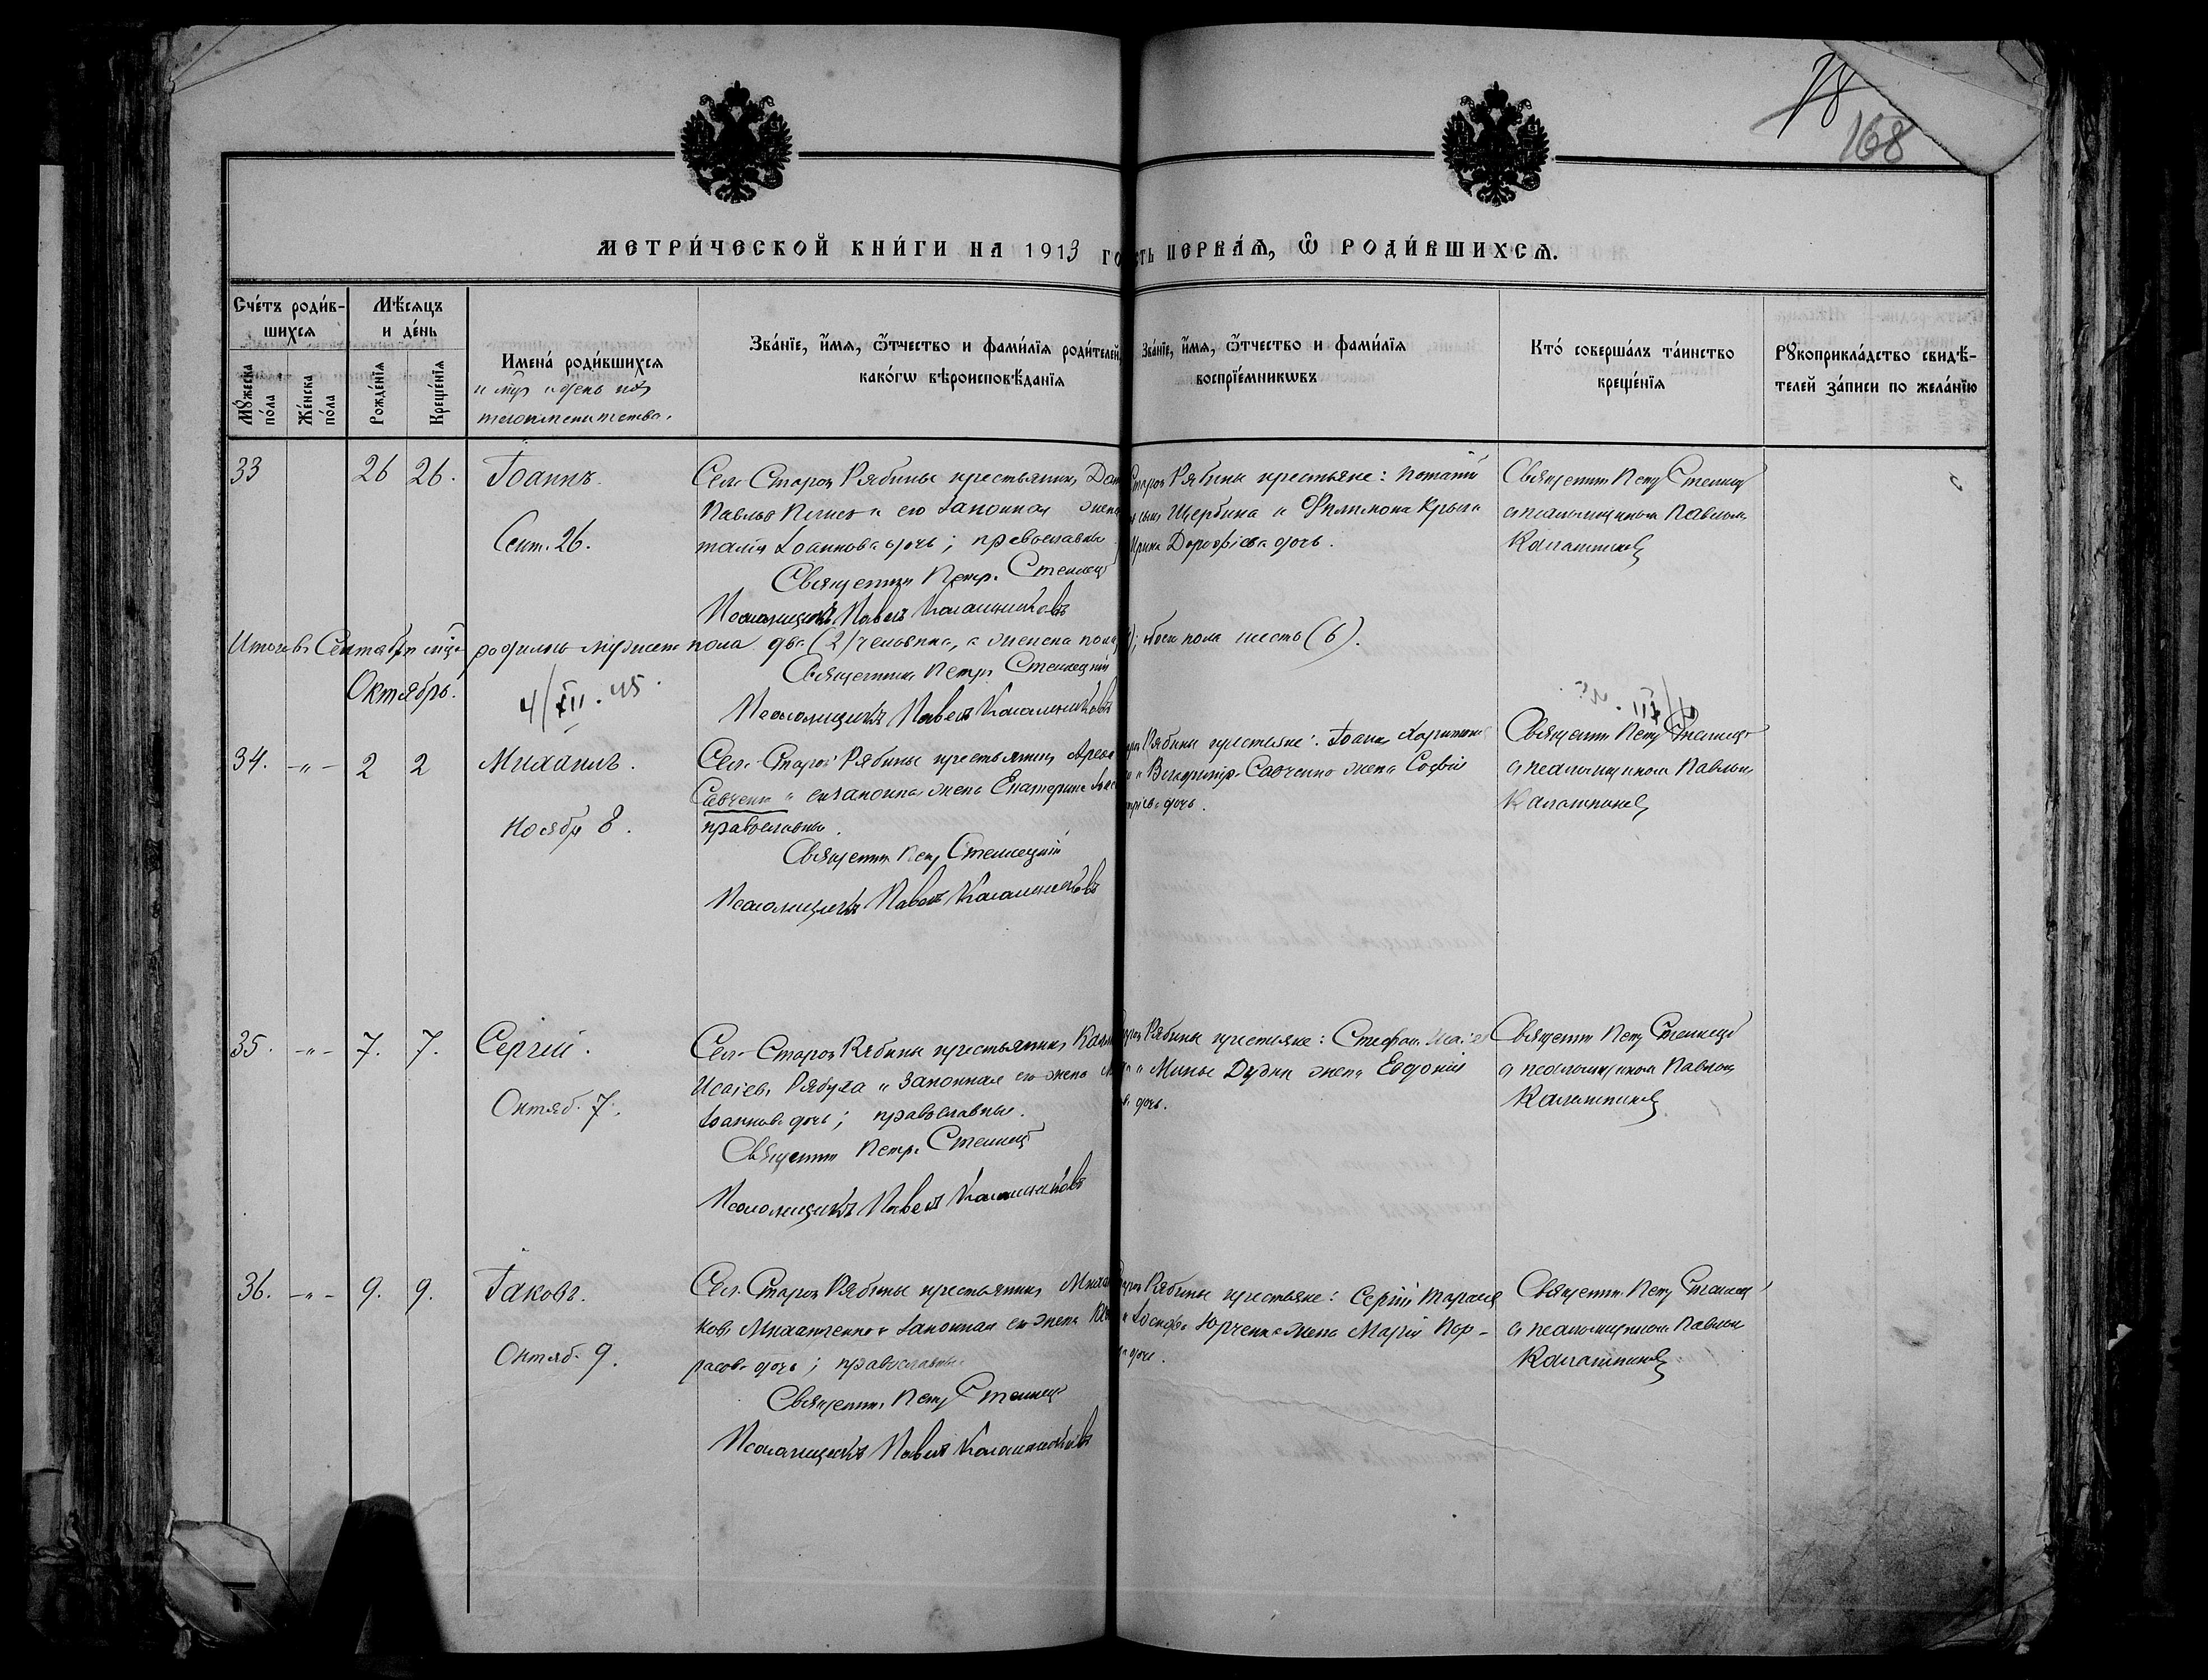 18
168
МЕТРИ́ЧЕСКОЙ КНИ́ГИ НА 1913 ГО
СТЬ ПЕРВА́Ѧ, Ѿ РОДИ́ВШИХСѦ.
Сче́тъ роди́в-
шихсѧ
Мѣ́сѧцъ
и де́нь
Мꙋ́жеска по́ла
Же́нска по́ла
Рожде́нїѧ
Креще́нїѧ
Имена́ роди́вшихсѧ
и день
тезоименитства.
Зва́нїе, и҆́мѧ, ѻ҆́тчество и фами́лїѧ роди́телей,
како́гѡ вѣроисповѣ́данїѧ
Зва́нїе, и҆́мѧ, ѻ҆́тчество и фами́лїѧ
воспрїе́мникѡвъ
Кто́ соверша́лъ та́инство
креще́нїѧ
Рꙋкоприкла́дство свидѣ́-
телей за́писи по жела́нїю
33
26 26.
Іоаннъ.
Сент. 26.
Старой Рябины крестьянинъ
Павловъ и его законная жена
талія Іоаннова дочь; православны
Священникъ Петръ Стеллецкій
Псаломщикъ Павелъ Калашниковъ
Рябины крестьяне: Потапій
сынъ Щербина и Филимона
Ирина Дорофіева дочь.
Священникъ Петръ Стеллецкій
съ псаломщикомъ Павломъ
Калашниковъ
Итого въ Сентябрѣ родилось мужеска пола два (2) человѣка, а женска пола
обоего пола шесть (6).
Священникъ Петръ Стеллецкій
Октябрь.
4/XII. 45.
Псаломщикъ Павелъ Калашниковъ
34. -"- 2 2
Михаилъ.
Ноябр 8.
Старой Рябины крестьянинъ
Савченко и его законная жена Екатерина
православны.
Священникъ Петръ Стеллецкій
Псаломщикъ Павелъ Калашниковъ
Рябины крестьяне: Іоаннъ Харитоновъ
и Владиміра Савченко жена Софія
дочь.
Священникъ Петръ Стеллецкій
съ псаломщикомъ Павломъ
Калашниковъ
35. -"- 7. 7.
Сергій.
Октяб. 7.
Старой Рябины крестьянинъ
Исаіевъ Рябуха и законная его жена
Іоаннова дочь; православны.
Священникъ Петръ Стеллецкій
Псаломщикъ Павелъ Калашниковъ
Рябины крестьяне: Стефанъ
и Мины Дудки жена Евдокія
дочь.
Священникъ Петръ Стеллецкій
съ псаломщикомъ Павломъ
Калашниковъ
36. -"- 9. 9.
Іаковъ.
Октяб. 9.
Старой Рябины крестьянинъ
ковъ и законная его жена
расова дочь; православны.
Священникъ Петръ Стеллецкій
Псаломщикъ Павелъ Калашниковъ
Рябины крестьяне: Сергій
и Іосифа Юрченка жена Марія
дочь.
Священникъ Петръ Стеллецкій
съ псаломщикомъ Павломъ
Калашниковъ